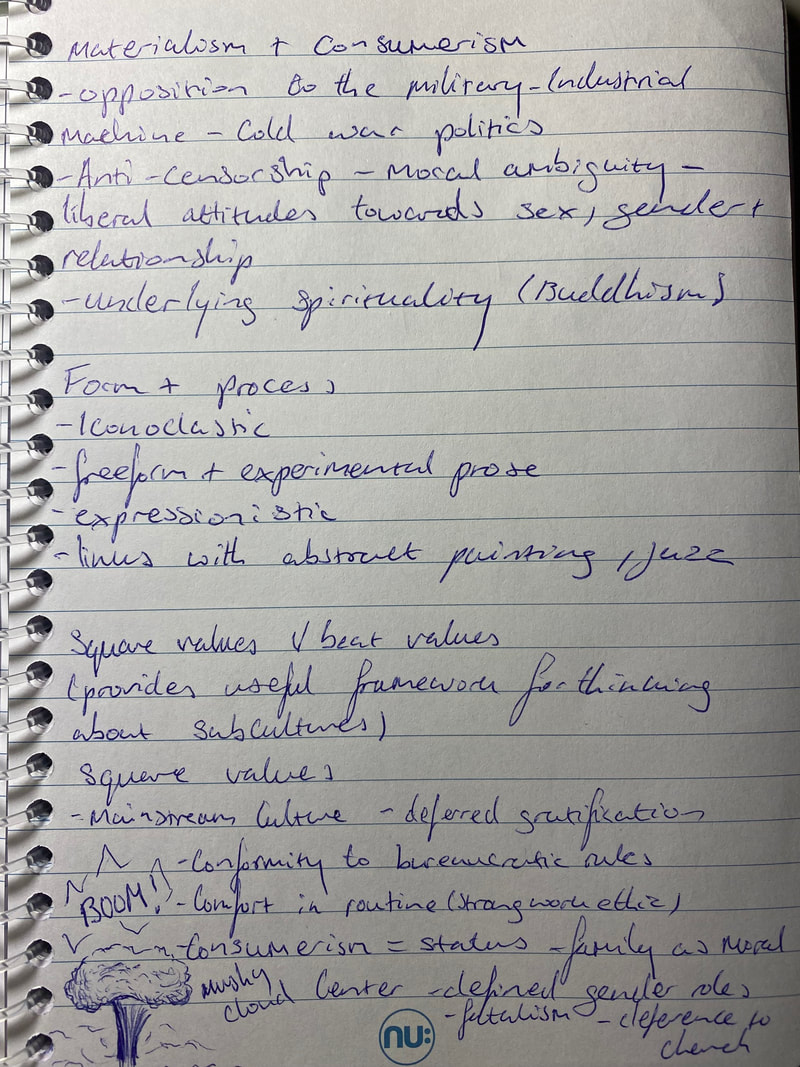 Materialism + Consumerism
- opposition to the military-Industrial
Machine - Cold war politics
- Anti-Censorship - Moral ambiguity -
liberal attitudes towards sex, gender +
relationship
- underlying spirituality (Buddhism)
Form + process
- Iconoclastic
- freeform + experimental prose
- expressionistic
- links with abstract painting, jazz
Square values V beat values
(provides useful framework for thinking
about subcultures)
Square values
- Mainstream Culture - deferred gratification
- Conformity to bureaucratic rules
BOOM! - Comfort in routine (strong work ethic)
- Consumerism = status - family as moral
mushy Center - defined gender roles
cloud - - deference to
nu: church